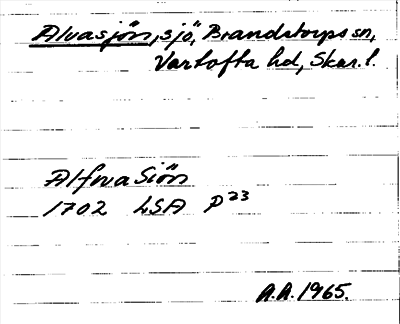 Alvasjön, sjö, Brandstorps sn,
Vartofta hd, Skar. l.
Alfwa Siön
1702 LSA P23
A.A. 1965.